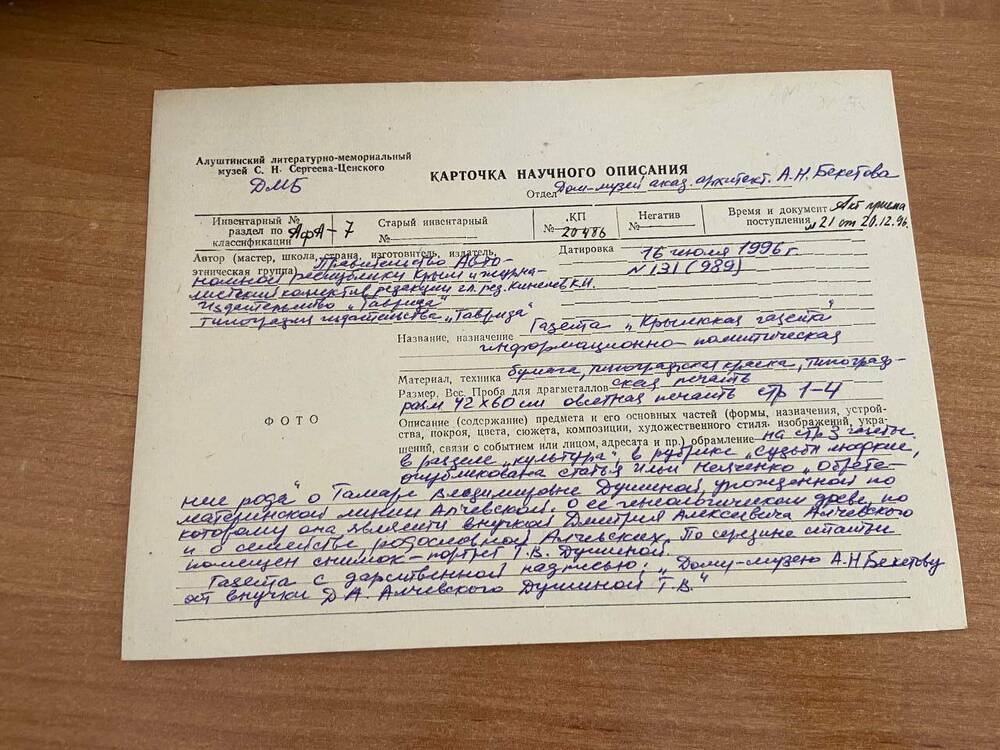 Алуштинский литературно-мемориальный
музей С. Н. Сергеева-Ценского
ДМБ
КАРТОЧКА НАУЧНОГО ОПИСАНИЯ
Отдел Дом-музей акад. архитект. А.Н. Бекетова
Инвентарный №
раздел по
классификации АфА-7
Старый инвентарный
№
КП
№ 20486
Негатив
№
Время и документ Акт приема
поступления № 21 от 20.12.96
Автор (мастер, школа, страна, изготовитель, издатель,
этническая группа) Правительство Авто-
номной республики Крым и журна-
листский коллектив редакции гл. ред. Кинелев К.И.
Издательство „Таврида"
типография издательства „Таврида"
Датировка 16 июля 1996 г.
N 131 (989)
Название, назначение Газета „Крымская газета"
информационно-политическая
Материал, техника бумага, типографская краска, типограф-
Размер. Вес. Проба для драгметаллов ская печать
разм 42 х 60 см офсетная печать стр 1-4
ФОТО
Описание (содержание) предмета и его основных частей (формы, назначения, устрой-
ства, покроя, цвета, сюжета, композиции, художественного стиля, изображений, укра-
шений, связи с событием или лицом, адресата и пр.) обрамление на стр 3 газеты.
в разделе „культура", в рубрике „судьбы людские",
опубликована статья Ильи Неяченко „Обрете-
ние рода" о Тамаре Владимировне Душиной, урожденной по
материнской линии Алчевской, о ее генеалогическом древе, по
которому она является внучкой Дмитрия Алексеевича Алчевского
и о семействе, родословной Алчевских. По середине статьи
помещен снимок-портрет Т.В. Душиной.
Газета с дарственной надписью: „Дому-музею А.Н Бекетову
от внучки Д.А. Алчевского Душиной Т.В."